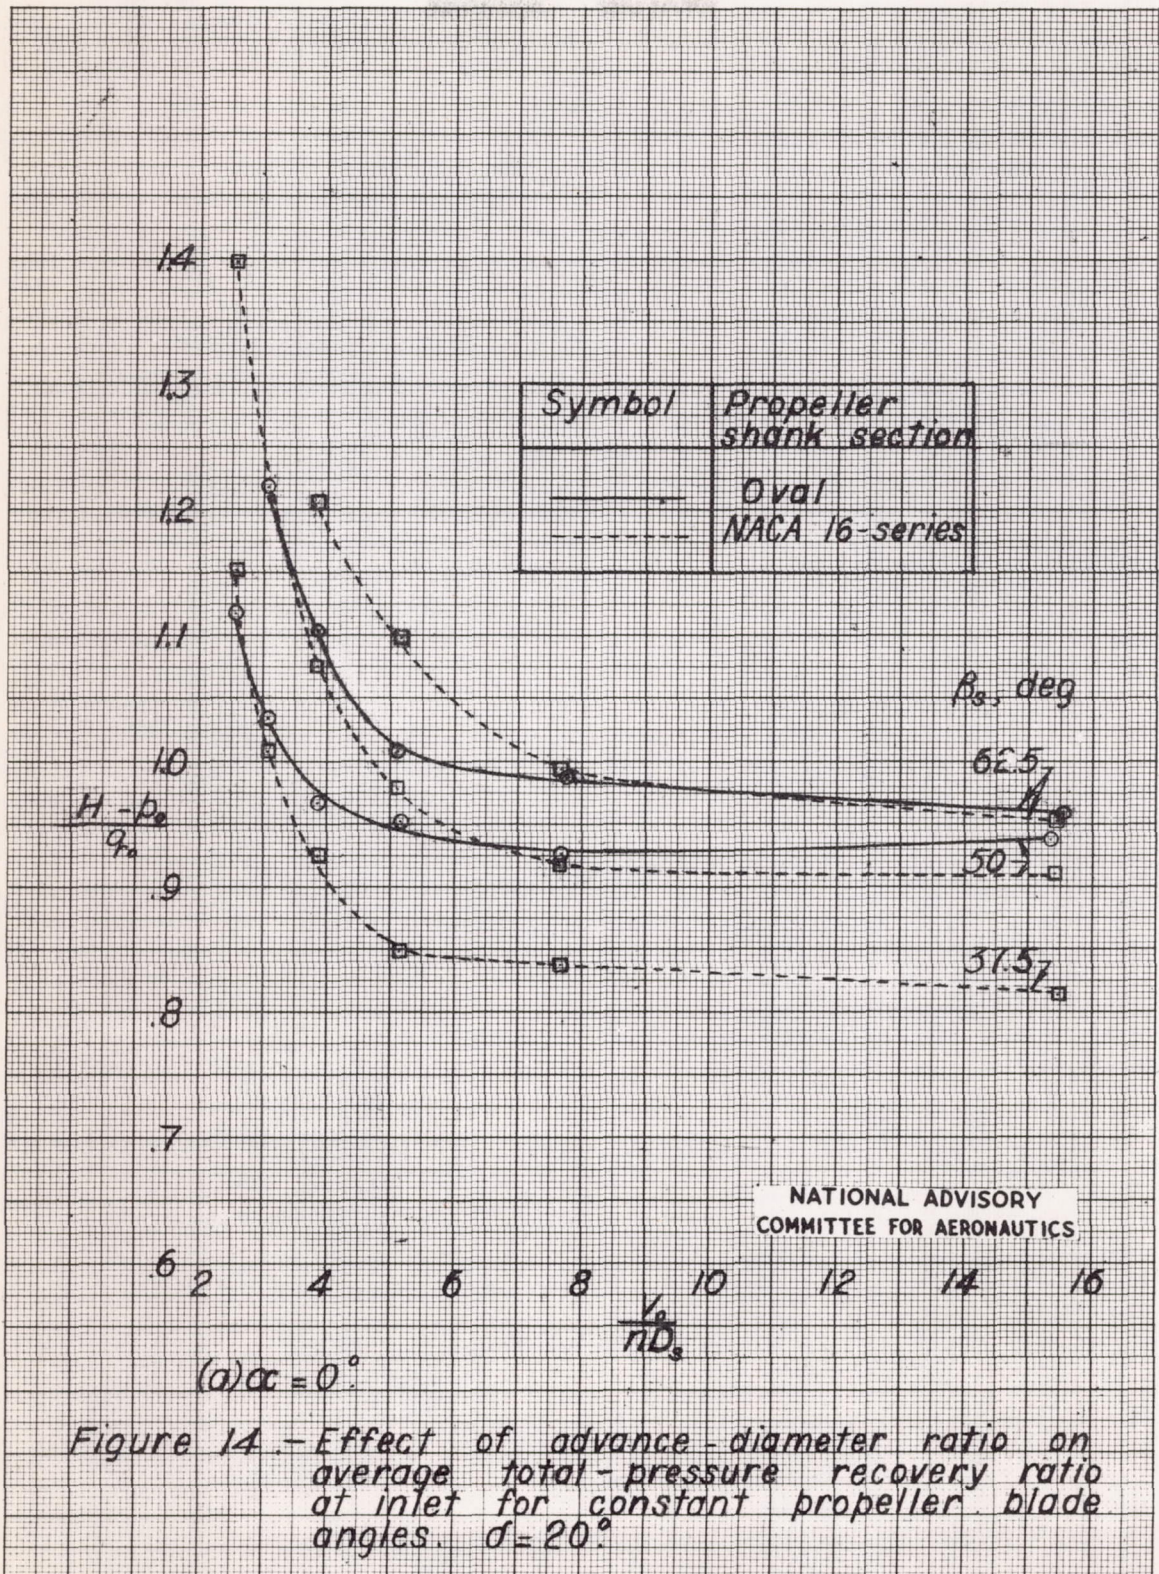 1.4
1.3
Symbol Propeller
shank section
Oval
1.2
NACA 16-series
1.1
βs, deg
1.0
62.5
H - p₀
q₀
50
.9
37.5
.8
.7
NATIONAL ADVISORY
COMMITTEE FOR AERONAUTICS
.6
2 4 6 8 10 12 14 16
V₀
nDs
(a) α = 0°.
Figure 14.- Effect of advance-diameter ratio on
average total-pressure recovery ratio
at inlet for constant propeller blade
angles. σ = 20°.